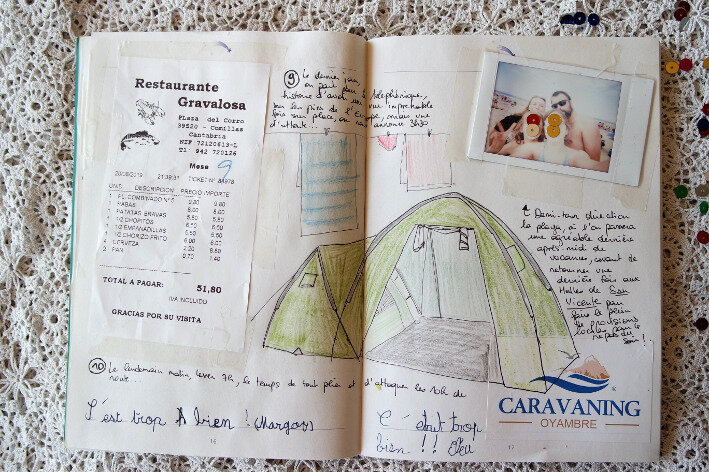 Restaurante
Gravalosa
Plaza del Corro
39520 - Comillas
Cantabria
NIF 72120613-L
Tl: 942 720126
Mesa 9
20/08/2019 21:39:31 TICKET Nº 84978
UNID. DESCRIPCION PRECIO IMPORTE
1 PL.COMBINADO Nº6 9,80 9,80
1 RABAS
1 PATATAS BRAVAS
1/2 CHOPITOS
1/2 EMPANADILLAS
1/2 CHORIZO FRITO
CERVEZA
2 PAN 0,70 1,40
TOTAL A PAGAR: 51,80
IVA INCLUIDO
GRACIAS POR SU VISITA
⑨ Le dernier jour,
on part pour le téléphérique,
histoire d'avoir une vue imprenable
sur les pics de l'Europe, mais une
fois sur place, on nous annonce 3h30
d'attente...
↑ Demi-tour direction
la plage, où l'on passera
une agréable dernière
après-midi de
vacances, avant de
retourner une
dernière fois aux
Halles de San
Vicente pour
faire le plein
de provisions
locales pour le
repas du
soir !
⑩ Le lendemain matin, lever 7h, le temps de tout plier et d'attaquer les 10h de
route...
C'est trop bien ! (Margot)
C'était trop
bien !!
CARAVANING
OYAMBRE
16
17